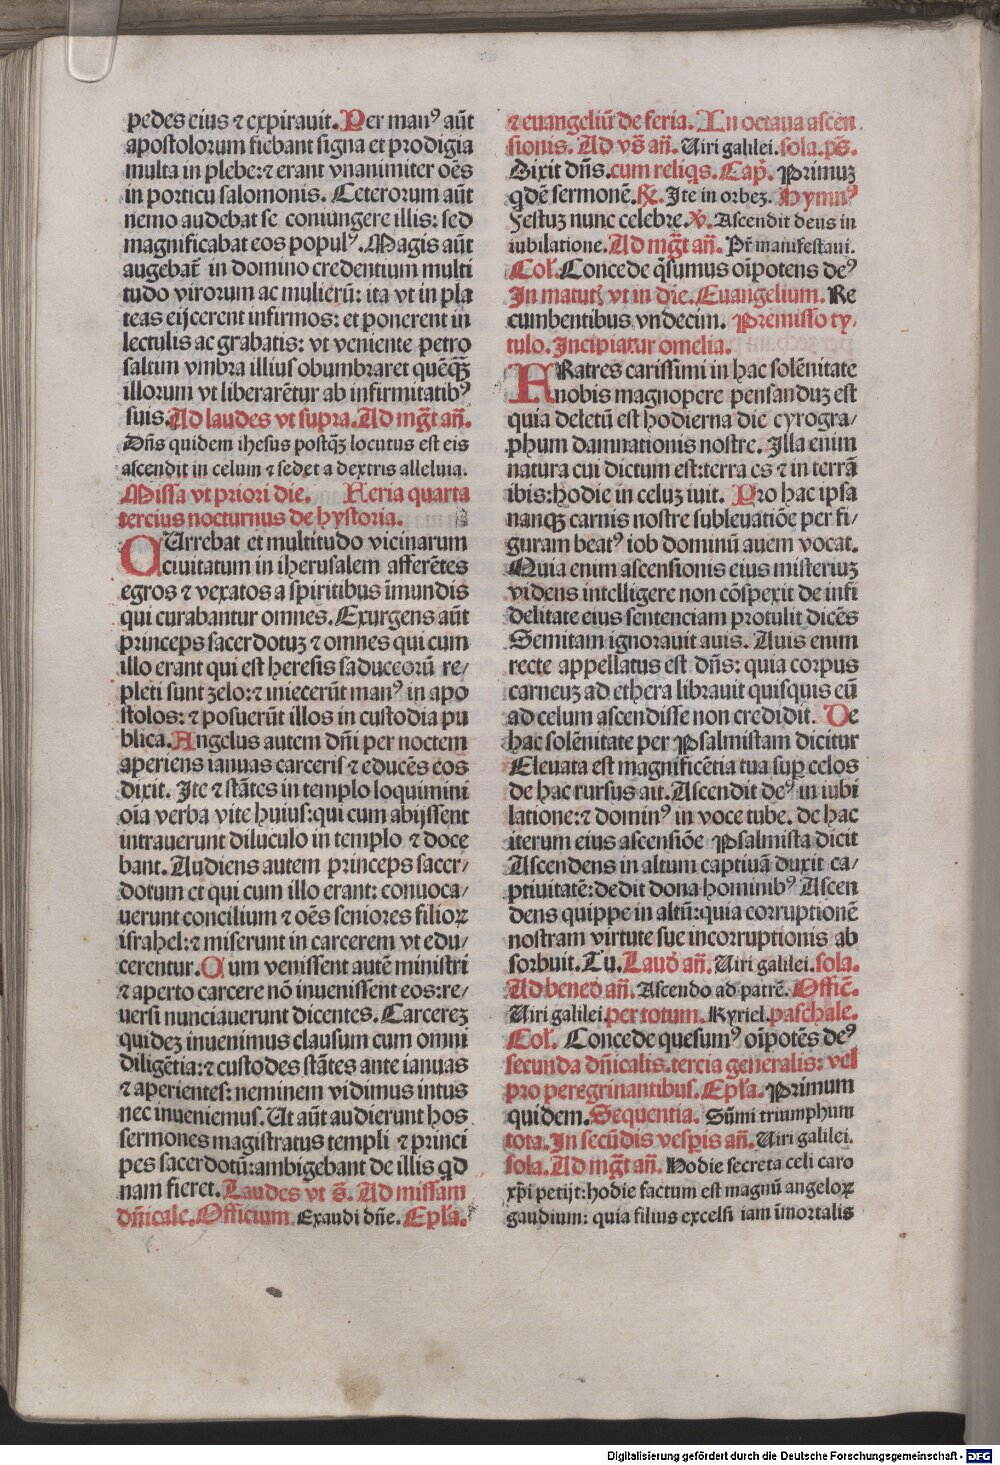 pedes eius ⁊ expirauit. Per manꝰ aūt
apostolorum fiebant signa et prodigia
multa in plebe: ⁊ erant vnanimiter oēs
in porticu salomonis. Ceterorum aūt
nemo audebat se coniungere illis: sed
magnificabat eos populꝰ. Magis aūt
augebat̄ in domino credentium multi
tudo virorum ac mulierū: ita vt in pla
teas eijcerent infirmos: et ponerent in
lectulis ac grabatis: vt veniente petro
saltim vmbra illius obumbraret quēqꝫ
illorum vt liberarētur ab infirmitatibꝰ
suis. Ad laudes vt supra. Ad mg̃t añ.
Dñs quidem ihesus postqꝫ locutus est eis
ascendit in celum ⁊ sedet a dextris alleluia.
Missa vt priori die. Feria quarta
tercius nocturnus de hystoria.
COUrrebat et multitudo vicinarum
ciuitatum in iherusalem afferētes
egros ⁊ vexatos a spiritibus īmundis
qui curabantur omnes. Exurgens aūt
princeps sacerdotuꝫ ⁊ omnes qui cum
illo erant qui est heresis saduceorū re/
pleti sunt zelo: ⁊ iniecerūt manꝰ in apo
stolos: ⁊ posuerūt illos in custodia pu
blica. Angelus autem dñi per noctem
aperiens ianuas carceris ⁊ educēs eos
dixit. Ite ⁊ stātes in templo loquimini
oīa verba vite huius: qui cum abijssent
intrauerunt diluculo in templo ⁊ doce
bant. Audiens autem princeps sacer/
dotum et qui cum illo erant: conuoca/
uerunt concilium ⁊ oēs seniores filioꝝ
israhel: ⁊ miserunt in carcerem vt edu/
cerentur. Cum venissent autē ministri
⁊ aperto carcere nō inuenissent eos: re/
uersi nunciauerunt dicentes. Carcereꝫ
quideꝫ inuenimus clausum cum omni
diligētia: ⁊ custodes stātes ante ianuas
⁊ aperientes: neminem vidimus intus
nec inueniemus. Ut aūt audierunt hos
sermones magistratus templi ⁊ princi
pes sacerdotū: ambigebant de illis qd
nam fieret. Laudes vt s̄. Ad missam
dñicale. Officium. Exaudi dñe. Epl̄a.
⁊ euangeliū de feria. In octaua ascen
sionis. Ad vs̄ añ. Uiri galilei. sola. ps̄.
Dixit dñs. cum reliqs. Cap̄. Primuꝫ
qdē sermonē. ℟. Ite in orbeꝫ. Hymnꝰ
Festuꝫ nunc celebre. ℣. Ascendit deus in
iubilatione. Ad mg̃t añ. Pr̄ manifestaui.
Col̄. Concede q̄sumus oīpotens deꝰ
In matut̄ vt in die. Euangelium. Re
cumbentibus vndecim. Premisso ty/
tulo. Incipiatur omelia.
FRatres carissimi in hac solēnitate
nobis magnopere pensanduꝫ est
quia deletū est hodierna die cyrogra/
phum damnationis nostre. Illa enim
natura cui dictum est: terra es ⁊ in terrā
ibis: hodie in celuꝫ iuit. Pro hac ipsa
nanqꝫ carnis nostre subleuatiōe per fi/
guram beatꝰ iob dominū auem vocat.
Quia enim ascensionis eius misteriuꝫ
videns intelligere non cōspexit de infi
delitate eius sentenciam protulit dicēs
Semitam ignorauit auis. Auis enim
recte appellatus est dñs: quia corpus
carneuꝫ ad ethera librauit quisquis eū
ad celum ascendisse non credidit. De
hac solēnitate per Psalmistam dicitur
Eleuata est magnificētia tua sup celos
de hac rursus ait. Ascendit deꝰ in iubi
latione: ⁊ dominꝰ in voce tube. de hac
iterum eius ascensiōe Psalmista dicit
Ascendens in altum captiuā duxit ca/
ptiuitatē: dedit dona hominibꝰ Ascen
dens quippe in altū: quia corruptionē
nostram virtute sue incorruptionis ab
sorbuit. Tu. Laud̄ añ. Uiri galilei. sola.
Ad bened̄ añ. Ascendo ad patrē. Offic̄.
Uiri galilei. per totum. Kyriel. paschale.
Col̄. Concede quesumꝰ oīpotēs deꝰ
secunda dñicalis. tercia generalis: vel
pro peregrinantibus. Epl̄a. Primum
quidem. Sequentia. Sūmi triumphum
tota. In secūdis vesp̄is añ. Uiri galilei.
sola. Ad mg̃t añ. Hodie secreta celi caro
xp̄i petijt: hodie factum est magnū angeloꝝ
gaudium: quia filius excelsi iam īmortalis
Digitalisierung gefördert durch die Deutsche Forschungsgemeinschaft - DFG